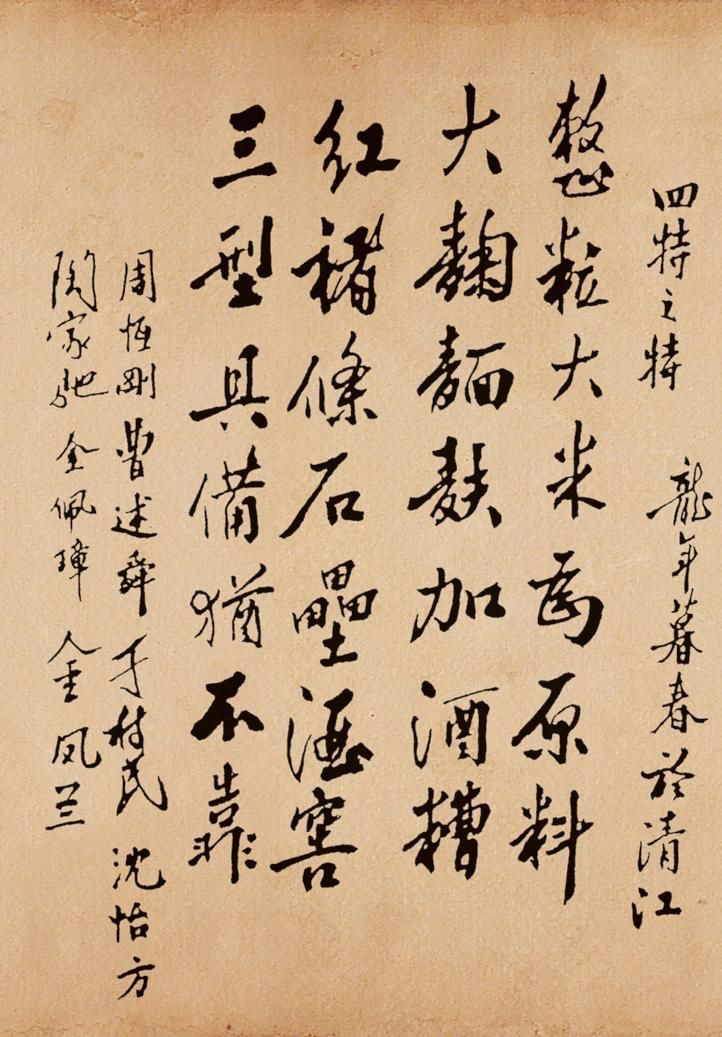 四特之特 龍年暮春於清江
整粒大米为原料
大麴麵麩加酒糟
红褚條石壘酒窖
三型具備猶不靠
周恒剛 曹述舜 于树民 沈怡方
陶家驰 金佩璋 金凤兰